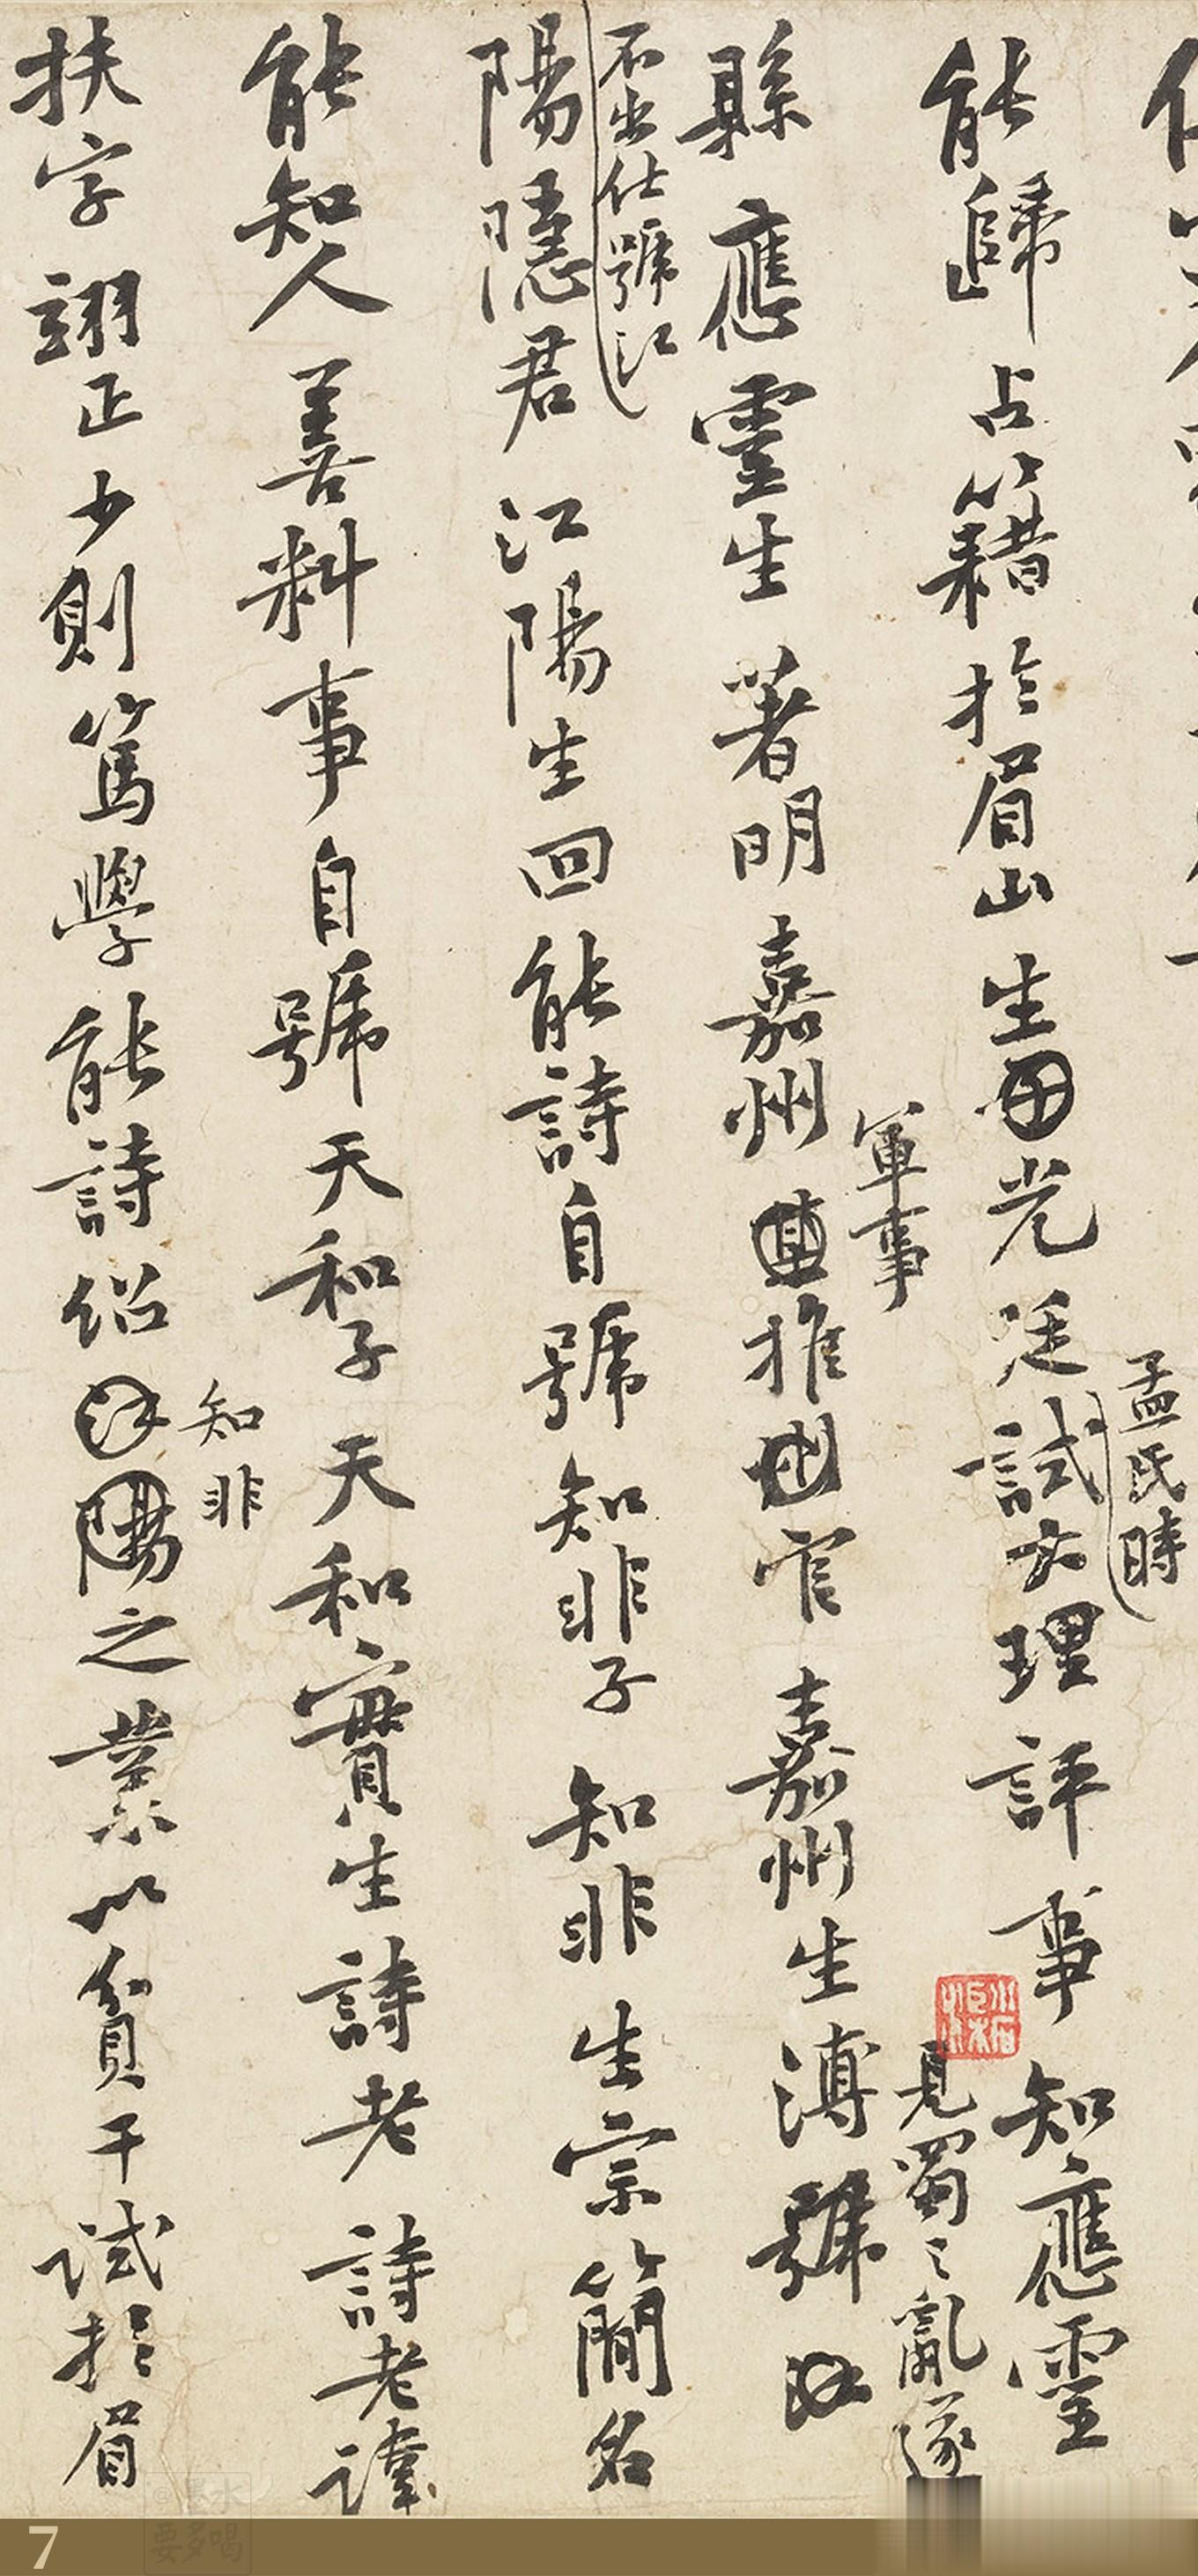 孟氏時
能歸占籍於眉山生光廷試大理評事知應靈
軍事
見蜀之亂遂
縣應靈生著明嘉州推官嘉州生溥號
不出仕號江
陽隱君江陽生回能詩自號知非子知非生宗簡名
能知人善料事自號天和子天和實生詩老詩老諱
知非
扶字翊正少則篤學能詩紹之業以貧干試於眉
7